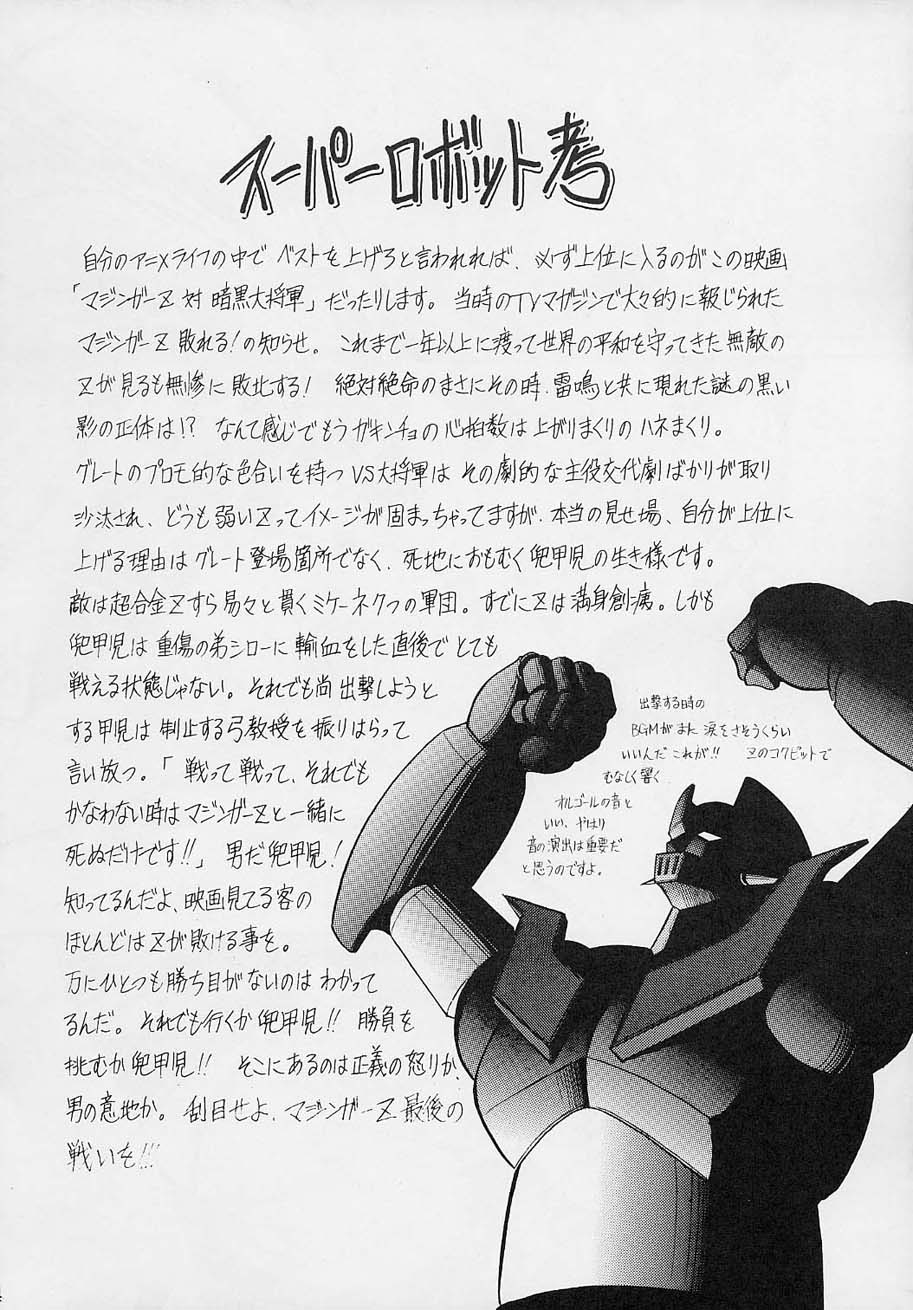 スーパーロボット考
自分のアニメライフの中で ベストを上げろと言われれば、必ず上位に入るのがこの映画
「マジンガーZ 対 暗黒大将軍」だったりします。当時のTVマガジンで大々的に報じられた
マジンガーZ 敗れる!の知らせ。これまで一年以上に渡って世界の平和を守ってきた無敵の
Zが見るも無惨に敗北する! 絶対絶命のまさにその時、雷鳴と共に現れた謎の黒い
影の正体は!? なんて感じでもうガキンチョの心拍数は上がりまくりのハネまくり。
グレートのプロモ的な色合いを持つ VS大将軍は その劇的な主役交代劇ばかりが取り
沙汰され、どうも弱いZってイメージが固まっちゃってますが、本当の見せ場、自分が上位に
上げる理由はグレート登場箇所でなく、死地におもむく兜甲児の生き様です。
敵は超合金Zすら易々と貫くミケーネ7つの軍団。すでにZは満身創痍。しかも
兜甲児は重傷の弟シローに輸血をした直後でとても
戦える状態じゃない。それでも尚 出撃しようと
する甲児は制止する弓教授を振りはらって
言い放つ。「戦って戦って、それでも
かなわない時はマジンガーZと一緒に
死ぬだけです!!」男だ兜甲児!
知ってるんだよ、映画見てる客の
ほとんどはZが敗ける事を。
万にひとつも勝ち目がないのはわかって
るんだ。それでも行くか兜甲児!! 勝負を
挑むか兜甲児!! そこにあるのは正義の怒りか、
男の意地か。刮目せよ、マジンガーZ最後の
戦いを!!!
出撃する時の
BGMがまた 涙をさそうくらい
いいんだ これが!! Zのコクピットで
むなしく響く
オルゴールの音と
いい、やはり
音の演出は重要だ
と思うのですよ。